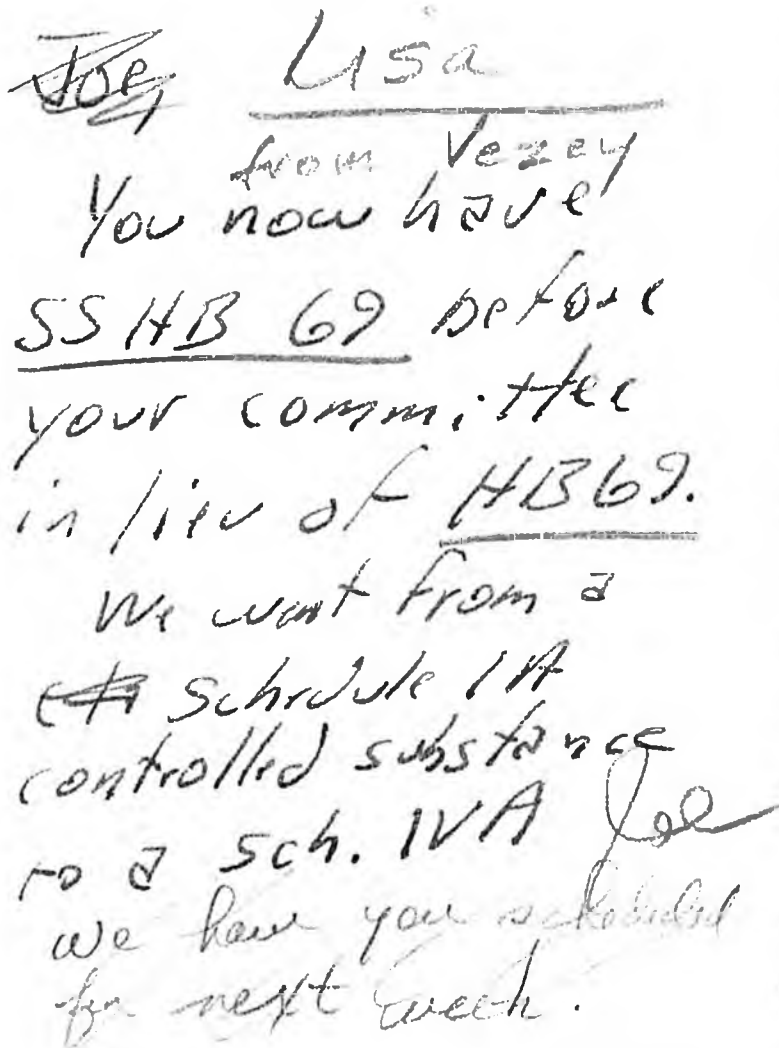 Joe, Lisa
from Vezey
You now have
SSHB 69 before
your committee
in lieu of HB69.
We went from a
Schedule IA
controlled substance
to a sch. IVA Joe
we have you scheduled
for next week.